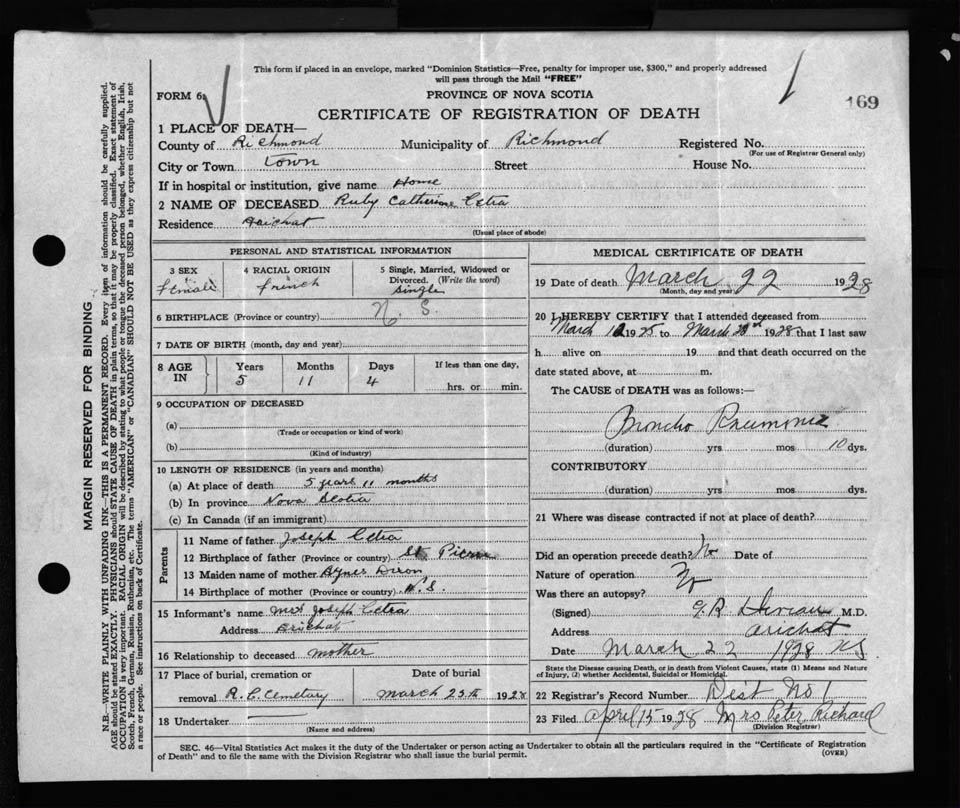 This form if placed in an envelope, marked "Dominion Statistics—Free, penalty for improper use, $300," and properly addressed
will pass through the Mail "FREE"
FORM 6.
PROVINCE OF NOVA SCOTIA
169
CERTIFICATE OF REGISTRATION OF DEATH
1 PLACE OF DEATH—
County of Richmond Municipality of Richmond Registered No.
(For use of Registrar General only)
City or Town Town Street House No.
If in hospital or institution, give name Home
2 NAME OF DECEASED Ruby Catherine
Residence Arichat
(Usual place of abode)
PERSONAL AND STATISTICAL INFORMATION
3 SEX 4 RACIAL ORIGIN 5 Single, Married, Widowed or
Divorced. (Write the word)
female french single
6 BIRTHPLACE (Province or country) N. S.
7 DATE OF BIRTH (month, day and year)
8 AGE IN Years Months Days If less than one day,
5 11 4 hrs. or min.
9 OCCUPATION OF DECEASED
(a)
(Trade or occupation or kind of work)
(b)
(Kind of industry)
10 LENGTH OF RESIDENCE (in years and months)
(a) At place of death 5 years 11 months
(b) In province Nova Scotia
(c) In Canada (if an immigrant)
Parents
11 Name of father Joseph
12 Birthplace of father (Province or country) St Pierre
13 Maiden name of mother Agnes
14 Birthplace of mother (Province or country) N.S.
15 Informant's name Mrs Joseph
Address Arichat
16 Relationship to deceased mother
17 Place of burial, cremation or Date of burial
removal R. C. Cemetary March 25th 1928
18 Undertaker
(Name and address)
MEDICAL CERTIFICATE OF DEATH
19 Date of death March 22 1928
(Month, day and year)
20 I HEREBY CERTIFY that I attended deceased from
March 1925 to March 1928 that I last saw
h alive on 19 and that death occurred on the
date stated above, at m.
The CAUSE of DEATH was as follows:—
Broncho Pneumonia
(duration) yrs mos 10 dys.
CONTRIBUTORY
(duration) yrs mos dys.
21 Where was disease contracted if not at place of death?
Did an operation precede death? No Date of
Nature of operation
Was there an autopsy? No
(Signed) M.D.
Address Arichat
Date March 22 1928 N.S.
State the Disease causing Death, or in death from Violent Causes, state (1) Means and Nature
of Injury, (2) whether Accidental, Suicidal or Homicidal.
22 Registrar's Record Number Dist No 1
23 Filed April 15 1928 Mrs Peter Richard
(Division Registrar)
SEC. 46—Vital Statistics Act makes it the duty of the Undertaker or person acting as Undertaker to obtain all the particulars required in the "Certificate of Registration
of Death" and to file the same with the Division Registrar who shall issue the burial permit.
(OVER)
MARGIN RESERVED FOR BINDING
N.B.—WRITE PLAINLY WITH UNFADING INK—THIS IS A PERMANENT RECORD. Every item of information should be carefully supplied.
AGE should be stated EXACTLY. PHYSICIANS should STATE CAUSE OF DEATH in plain terms, so that it may be properly classified. Exact statement of
OCCUPATION is very important. RACIAL ORIGIN will be described by stating to what people or tongue the deceased person belonged, whether English, Irish,
Scotch, French, German, Russian, Ruthenian, etc. The terms "AMERICAN" or "CANADIAN" SHOULD NOT BE USED as they express citizenship but not
a race or people. See instructions on back of Certificate.